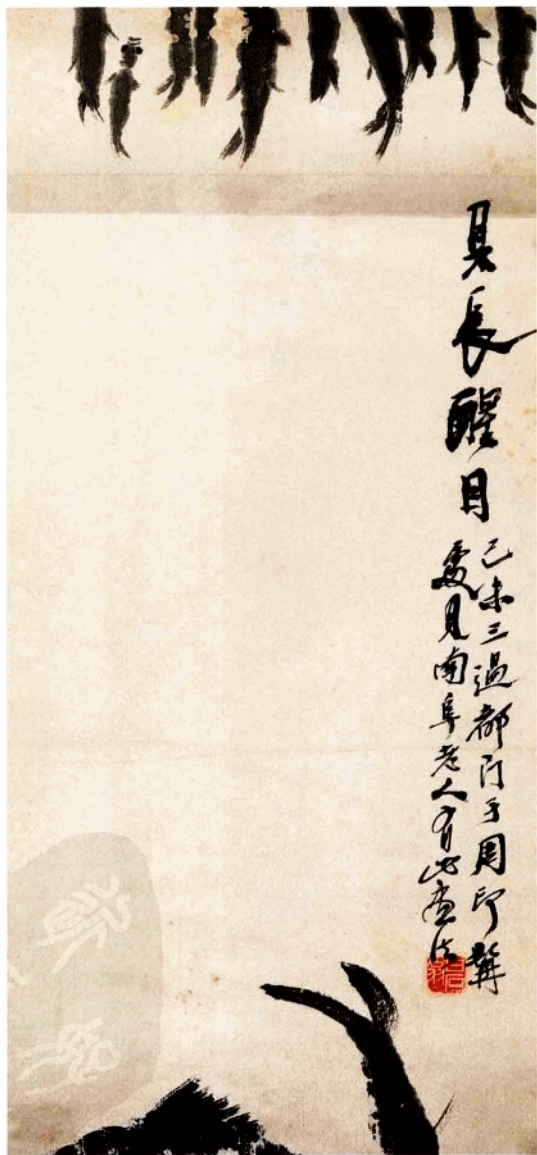 見長醒目
己未三過都門于周印
處見南阜老人有此畫法